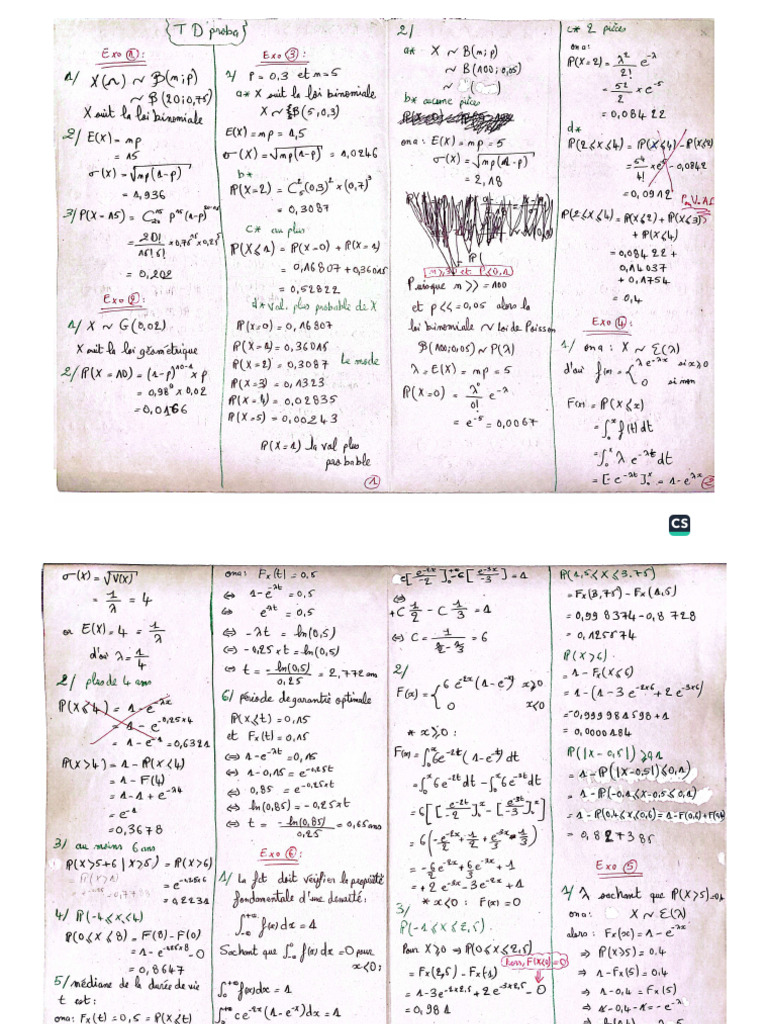 TD proba
Exo 1:
1/ X(Ω) ~ B(n;p)
~ B(20;0,75)
X suit la loi binomiale
2/ E(X) = np
= 15
σ(X) = √np(1-p)
= 1,936
3/ P(X=15) = C₂₀¹⁵ p¹⁵(1-p)²⁰⁻¹⁵
= 20!/15!5! × 0,75¹⁵ × 0,25⁵
= 0,202
Exo 2:
1/ X ~ G(0,02)
X suit la loi géométrique
2/ P(X=10) = (1-p)¹⁰⁻¹ × p
= 0,98⁹ × 0,02
= 0,0166
Exo 3:
1/ P = 0,3 et n=5
a* X suit la loi binomiale
X ~ B(5,0,3)
E(X) = np = 1,5
σ(X) = √np(1-p) = 1,0246
b*
P(X=2) = C₅²(0,3)² × (0,7)³
= 0,3087
c* au plus
P(X⩽1) = P(X=0) + P(X=1)
= 0,16807 + 0,36015
= 0,52822
d* val. plus probable de X
P(X=0) = 0,16807
P(X=1) = 0,36015
P(X=2) = 0,3087 le mode
P(X=3) = 0,1323
P(X=4) = 0,02835
P(X=5) = 0,00243
P(X=1) la val plus
probable
1
2/
a* X ~ B(n;p)
~ B(100;0,05)
b* aucune pièces
ona: E(X) = np = 5
σ(X) = √np(1-p)
= 2,18
n⩾30 et P⩽0,1
Puisque n >> = 100
et p << = 0,05 alors la
loi binomiale ~ Loi de Poisson
B(100;0,05) ~ P(λ)
λ = E(X) = np = 5
P(X=0) = λ⁰/0! e^-λ
= e⁻⁵ = 0,0067
c* 2 pièces
ona:
P(X=2) = λ²/2! e^-λ
= 5²/2 × e⁻⁵
= 0,08422
d*
P(2⩽X⩽4) = P(X⩽4) - P(X⩽2)
= 5⁴/4! × e⁻⁵ - 0,0842
= 0,0912
P(2⩽X⩽4) = P(X⩽2) + P(X⩽3)
+ P(X⩽4)
= 0,08422 +
0,14037
+ 0,1754
= 0,4
Exo 4:
1/ ona: X ~ Ɛ(λ)
d'où f(x) = { λe^-λx si x⩾0
0 si non
F(x) = P(X⩽x)
= ∫₀ˣ f(t)dt
= ∫₀ˣ λ e^-λt dt
= [-e^-λt]₀ˣ = 1-e^-λx
2
CS
σ(X) = √V(X)
= 1/λ = 4
or E(X) = 4 = 1/λ
d'où λ = 1/4
2/ plus de 4 ans
P(X⩽4) = 1-e^-λx
= 1-e^-0,25×4
= 1-e⁻¹ = 0,6321
P(X>4) = 1-P(X⩽4)
= 1-F(4)
= 1-1+e^-λ4
= e⁻¹
= 0,3678
3/ au moins 6 ans
P(X>5+6 | X>5) = P(X>6)
= e^-0,25×6
= 0,2231
4/ P(-4⩽X⩽4)
P(0⩽X⩽8) = F(8)-F(0)
= 1-e^-0,25×8 - 0
= 0,8647
5/ médiane de la durée de vie
t est:
ona: Fx(t) = 0,5 = P(X⩽t)
ona: Fx(t) = 0,5
⇔ 1-e^-λt = 0,5
⇔ e^-λt = 0,5
⇔ -λt = ln(0,5)
⇔ -0,25×t = ln(0,5)
⇔ t = -ln(0,5)/0,25 = 2,772 ans
6/ période de garantie optimale
P(X⩽t) = 0,15
et Fx(t) = 0,15
⇔ 1-e^-λt = 0,15
⇔ 1-0,15 = e^-0,25t
⇔ 0,85 = e^-0,25×t
⇔ ln(0,85) = -0,25×t
⇔ t = -ln(0,85)/0,25 = 0,65 ans
Exo 6:
1/ La fct doit vérifier la propriété
fondamentale d'une densité:
∫ f(x)dx = 1
Sachant que ∫ f(x)dx = 0 pour
x⩽0;
∫₀^+∞ f(x)dx = 1
∫₀^+∞ ce^-2x(1-e^-x)dx = 1
c[e^-2x/-2]₀^+∞ - c[e^-3x/-3] = 1
⇔
+c 1/2 - c 1/3 = 1
⇔ c = 6
2/
F(x) = { 6e^-2x(1-e^-x) x⩾0
0 x⩽0
* x⩾0:
F(x) = ∫₀ˣ 6e^-2t(1-e^-t)dt
= ∫₀ˣ 6e^-2t dt - ∫₀ˣ 6e^-3t dt
= 6[[e^-2t/-2]₀ˣ - [e^-3t/-3]₀ˣ]
= 6(-e^-2x/2 + 1/2 + e^-3x/3 - 1/3)
= -6/2 e^-2x + 6/3 e^-3x + 1
= +2e^-3x - 3e^-2x + 1
* x<0: F(x) = 0
3/
P(-1⩽X⩽2,5).
Pour X⩾0 ⇒ P(0⩽X⩽2,5)
Pour, F(X⩽0)=0
= Fx(2,5) - Fx(-1)
= 1-3e^-2×2,5 + 2e^-3×2,5 - 0
= 0,981
P(1,5⩽X⩽3,75)
= Fx(3,75) - Fx(1,5)
= 0,998374 - 0,8728
= 0,125574
P(X>6).
= 1-Fx(X⩽6)
= 1-(1-3e^-2×6 + 2e^-3×6)
= -0,999981598 + 1
= 0,0000184
P(|X-0,5|)⩾0,1
= 1-P(|X-0,5|⩽0,1)
= 1-P(-0,1⩽X-0,5⩽0,1)
= 1-P(0,4⩽X⩽0,6) = 1-F(0,6)+F(0,4)
= 0,827385
Exo 5:
1/ λ sachant que P(X>5)=0,4
ona: X ~ Ɛ(λ)
alors: Fx(x) = 1-e^-λx
⇒ P(X>5) = 0,4
⇒ 1-Fx(5) = 0,4
⇒ 1-0,4 = Fx(5)